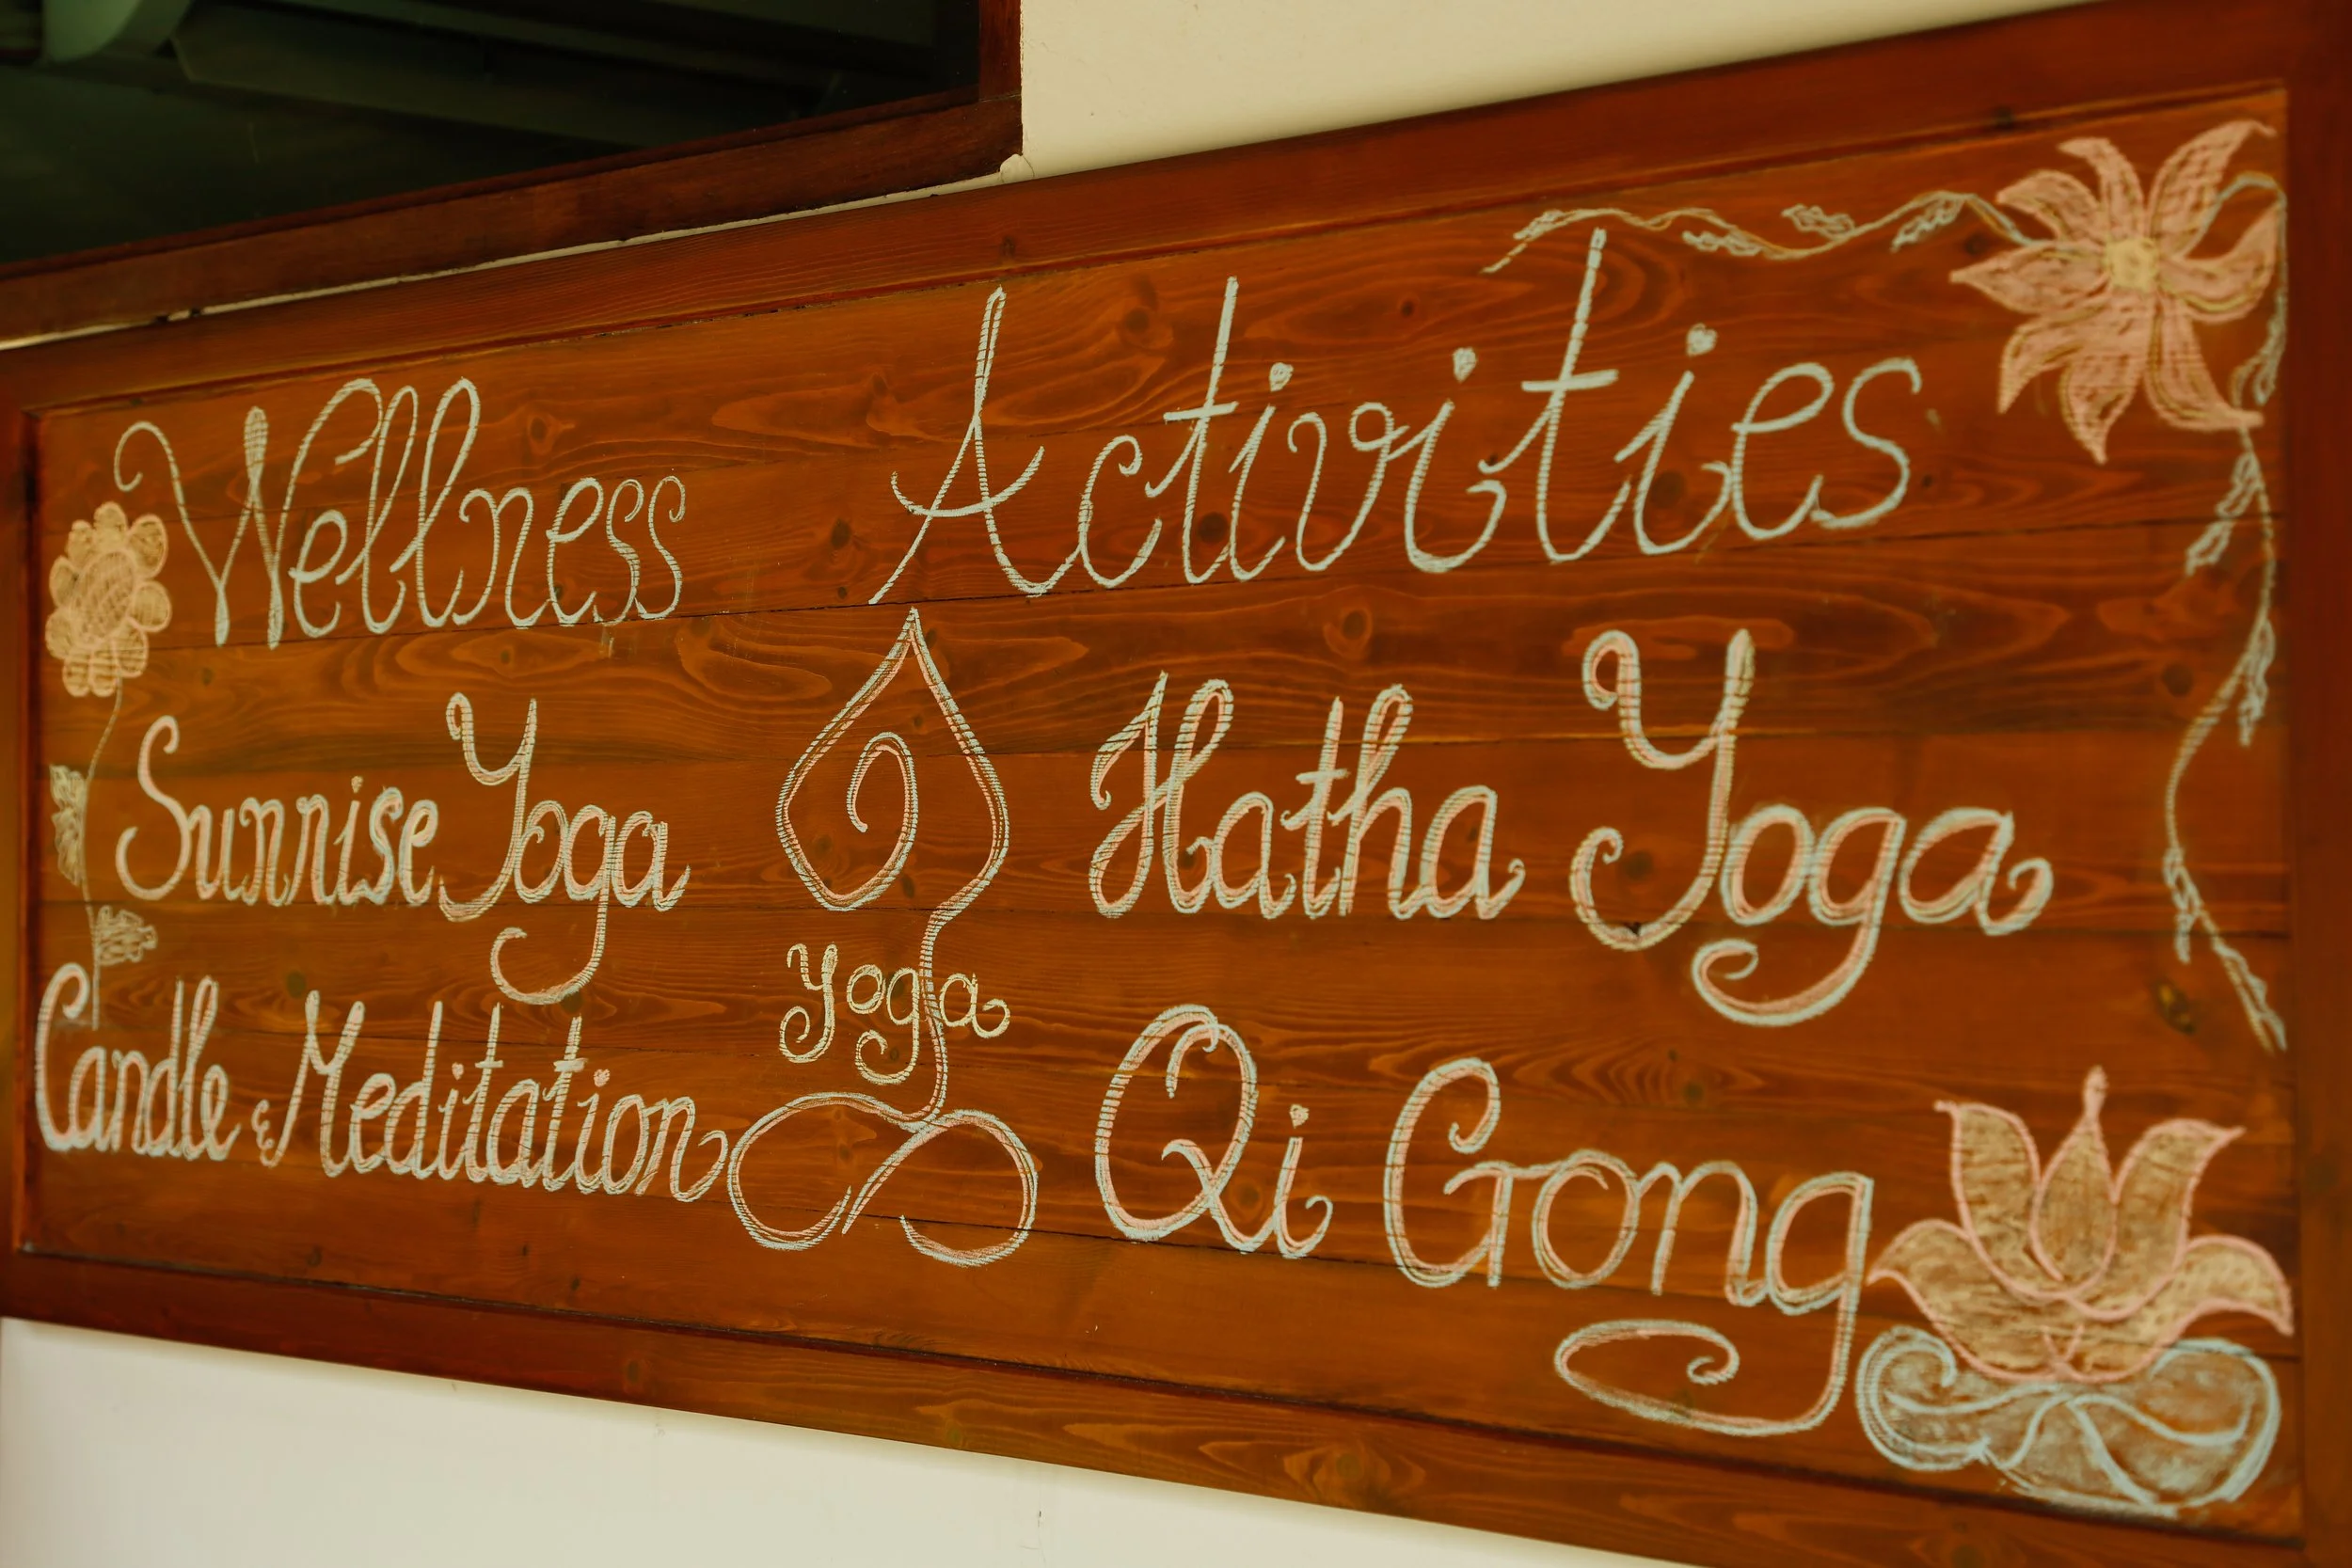 Wellness Activities
Sunrise Yoga
Candle & Meditation
Yoga
Hatha Yoga
Qi Gong